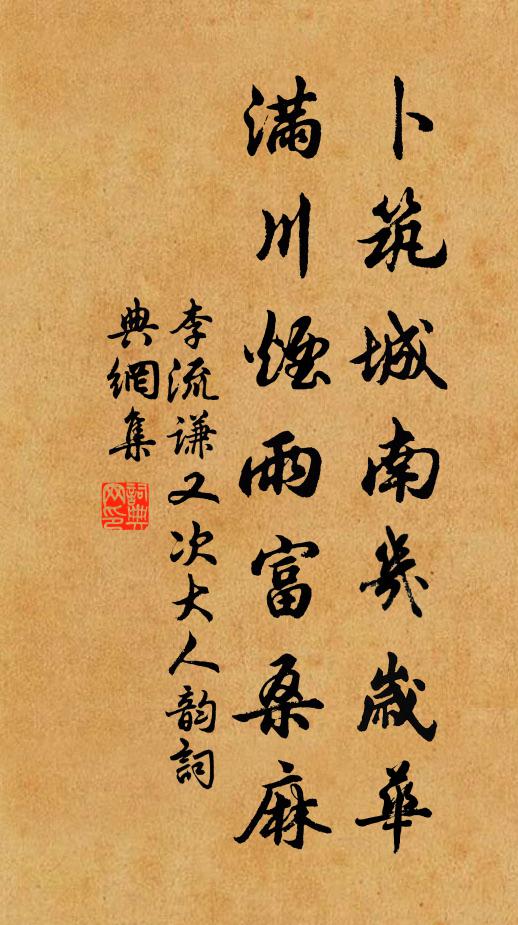 卜筑城南幾歲華
滿川煙雨富桑麻
李流謙又次大人韵詞
典網集
詞典
网印